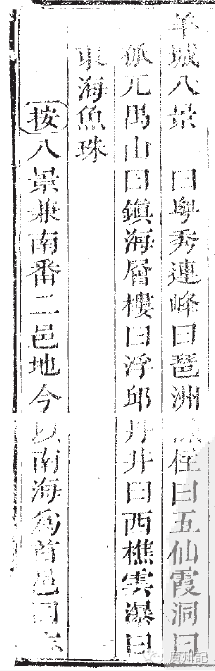 羊城八景 曰粵秀連峰曰琶洲柱曰五仙霞洞曰
孤兀禺山曰鎮海層樓曰浮邱丹井曰西樵雲瀑曰
東海魚珠
按八景兼南番二邑地今以南海爲首邑